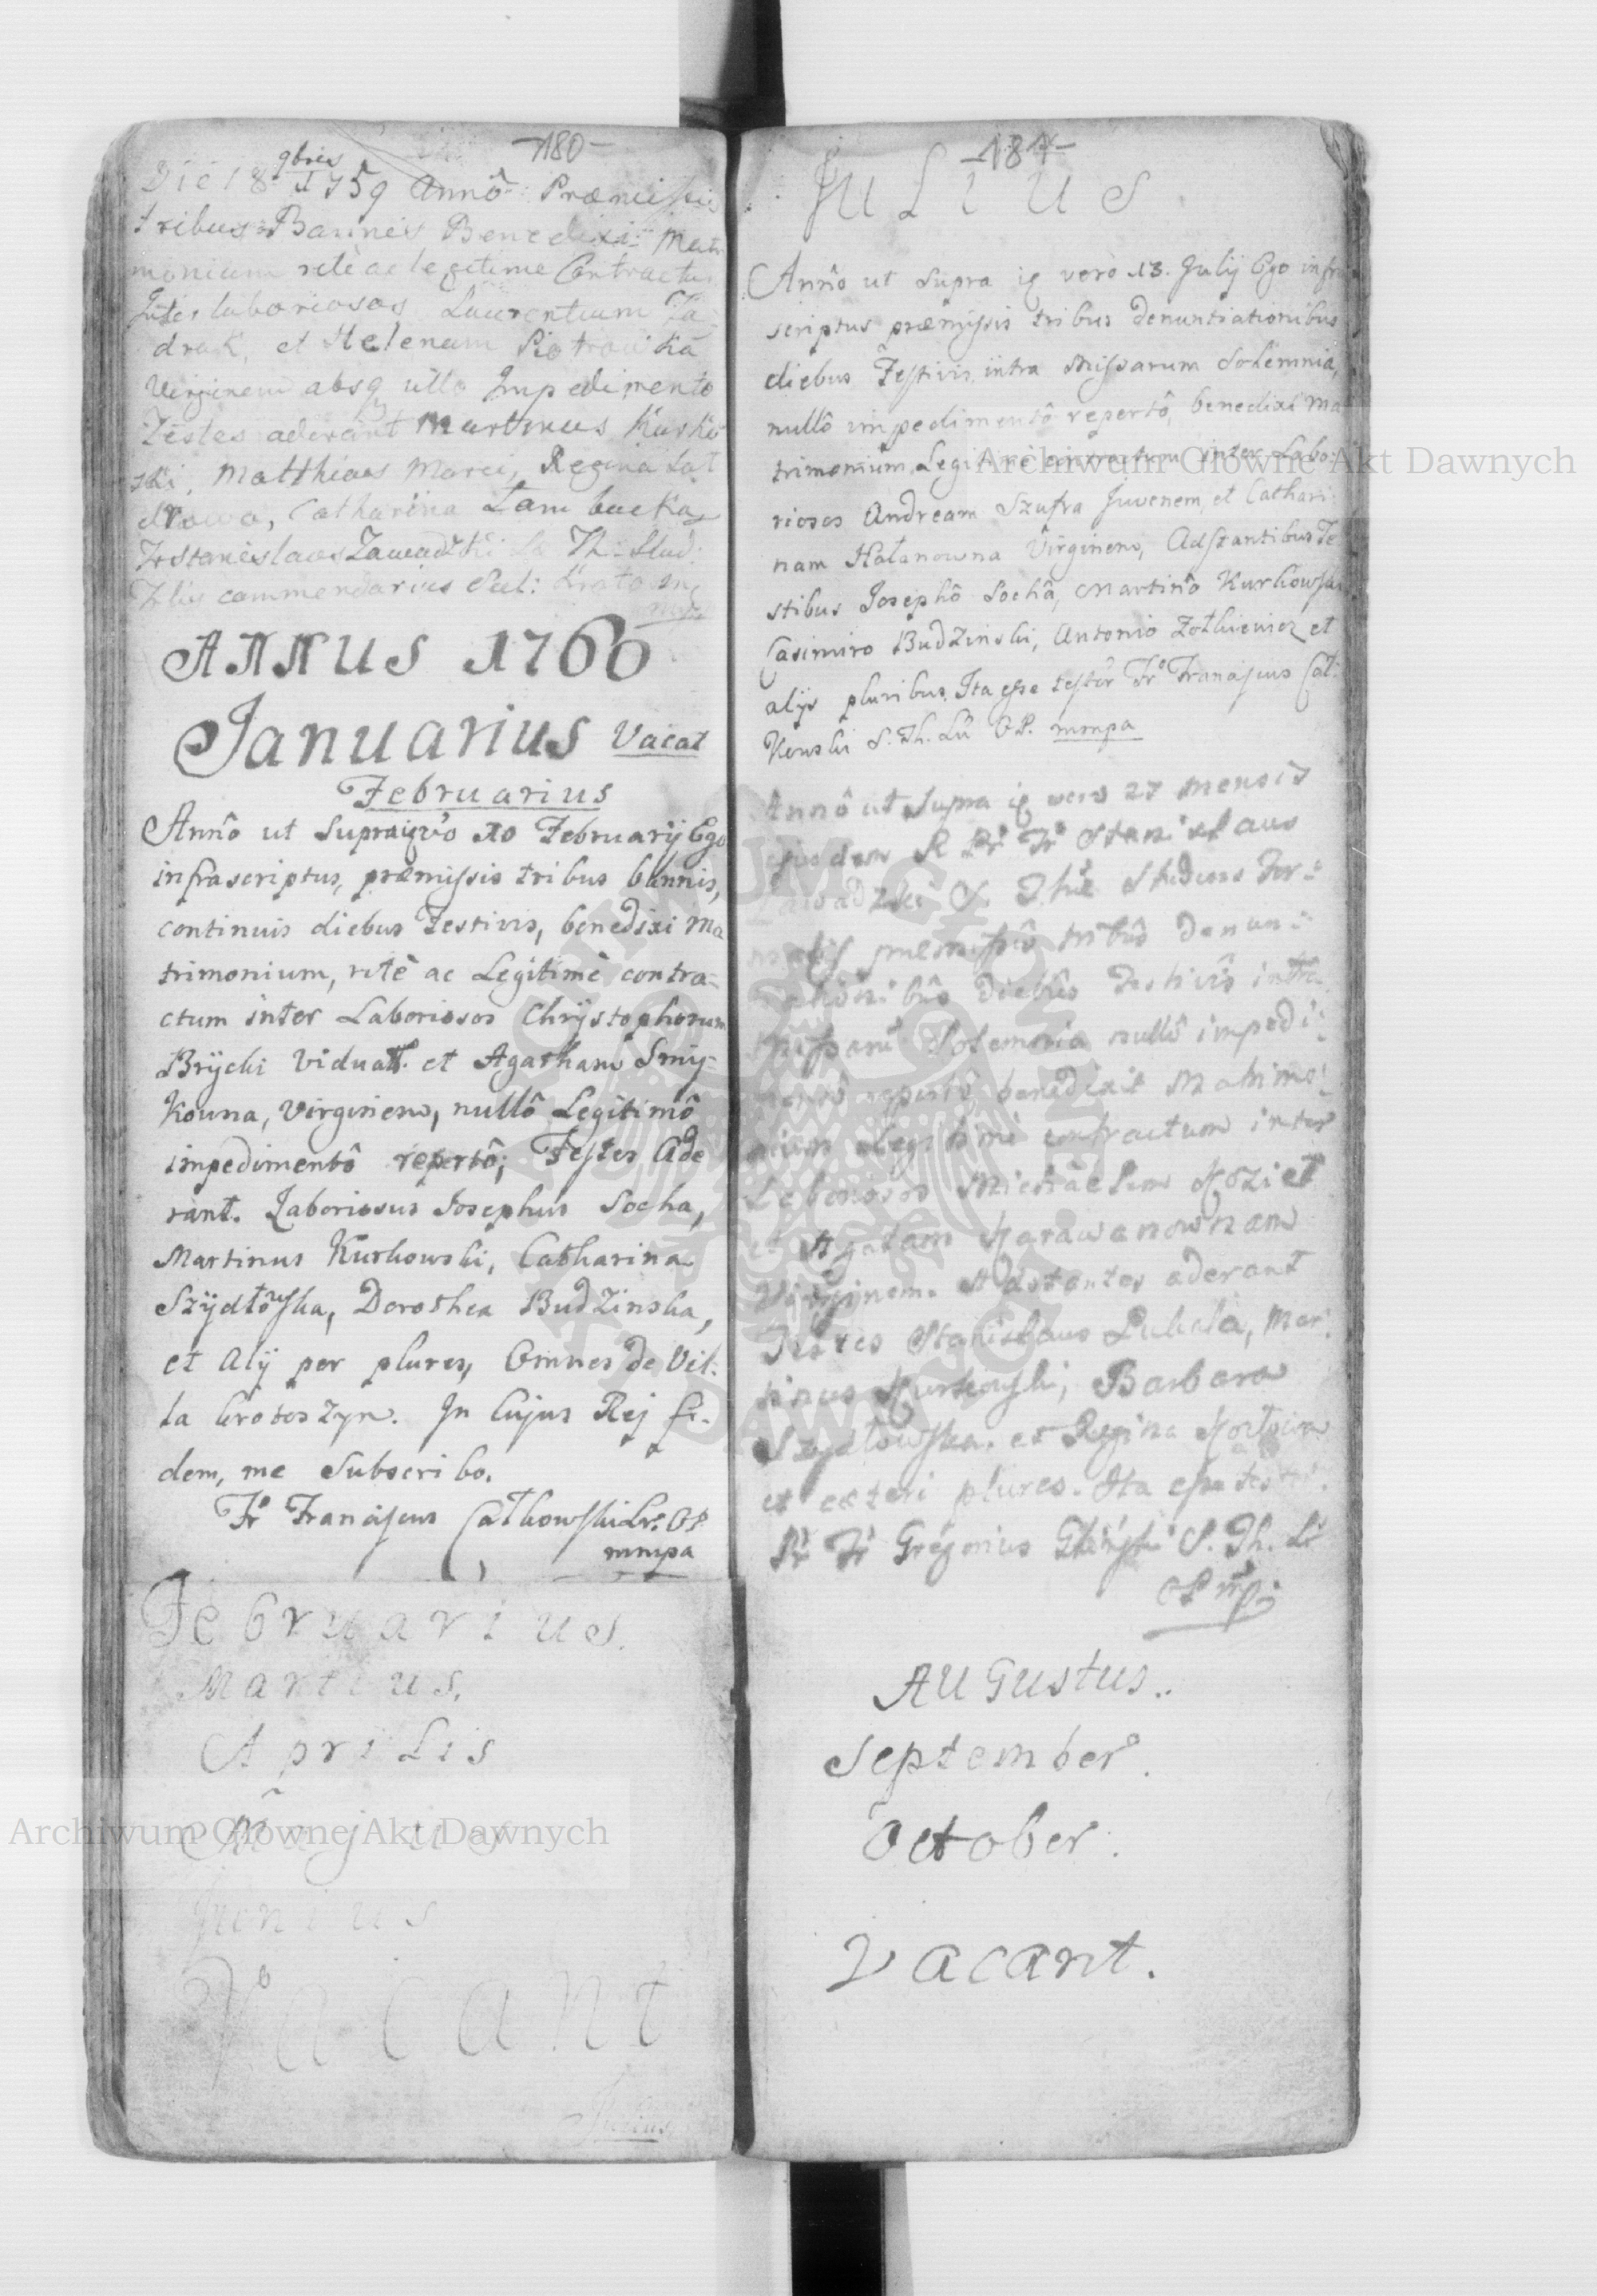 -180-
Die 18 9bris 1759 Annô Præmissis
tribus Bannis Benedixi Matr
monium ritè ac legitime Contractu
Inter laboriosos Laurentium Za
drak, et Helenam Piotrowska
Virginem absq ullo Impedimento
Testes aderant Martinus Kurko
ski, Matthias Marci, Regina
Catharina Lambucka
Fr Stanislaus Zawadzki Th: Stud:
commendarius Eccl:
mpp
ANNUS 1760
Januarius Vacat
Februarius
Annô ut Supra 10 Februarij Ego
infrascriptus, præmissis tribus bannis,
continuis diebus Festivis, benedixi Ma
trimonium, ritè ac Legitimè contra-
ctum inter Laboriosos Chrystophorum
Brycki Viduum et Agatham Smy-
kouna, Virginem, nullô Legitimô
impedimentô repertô; Testes Ade
rant. Laboriosus Josephus Socha,
Martinus Kurkowski, Catharina
Szydłowska, Dorothea Budzinska,
et Alij per plures, Omnes de Vil-
la Krotoszyn. In Cujus Rej fi-
dem, me Subscribo.
Fr Franciscus Catkowski Lr. OP
mmpa
Februarius.
Martius.
Aprilis
Majus
Junius
Vacant
Julius
-181-
Julius
Annô ut Supra verò 13. Julij Ego infra
scriptus præmissis tribus denuntiationibus
diebus Festivis, intra Missarum Solemnia,
nullô impedimentô repertô, benedixi Ma
trimonium, Legitimè contractum inter Labo-
riosos Andream Szufra Juvenem, et Cathari-
nam Hatanowna Virginem, Adstantibus Te
stibus Josephô Sochâ, Martinô Kurkowski
Casimiro Budzinski, Antonio Zotkiewicz et
alijs pluribus, Ita esse testor Fr Franciscus Cat:
kowski S. Th. Lr OP. mmpa
Annô ut Supra verò 27 mensis
ejusdem R Pr Fr Stanislaus
Zawadzki S. Thæ Studens
præmissis tribus denun-
tiationibus diebus Festivis intra
Missarū Solemnia nullô impedi-
mentô repertô, benedixit Matrimo-
nium legitimè contractum inter
Laboriosos Michaelem Koziet
et Agatam Karawanownam
Virginem. Adstantes aderant
Testes Stanislaus Mar-
tinus Kurkowski, Barbara
Szydłowska, et Regina
et cæteri plures. Ita esse testor
Pr Fr Gregorius S. Th. Lr
OP mp.
AUGUSTUS..
September.
October.
Vacant.